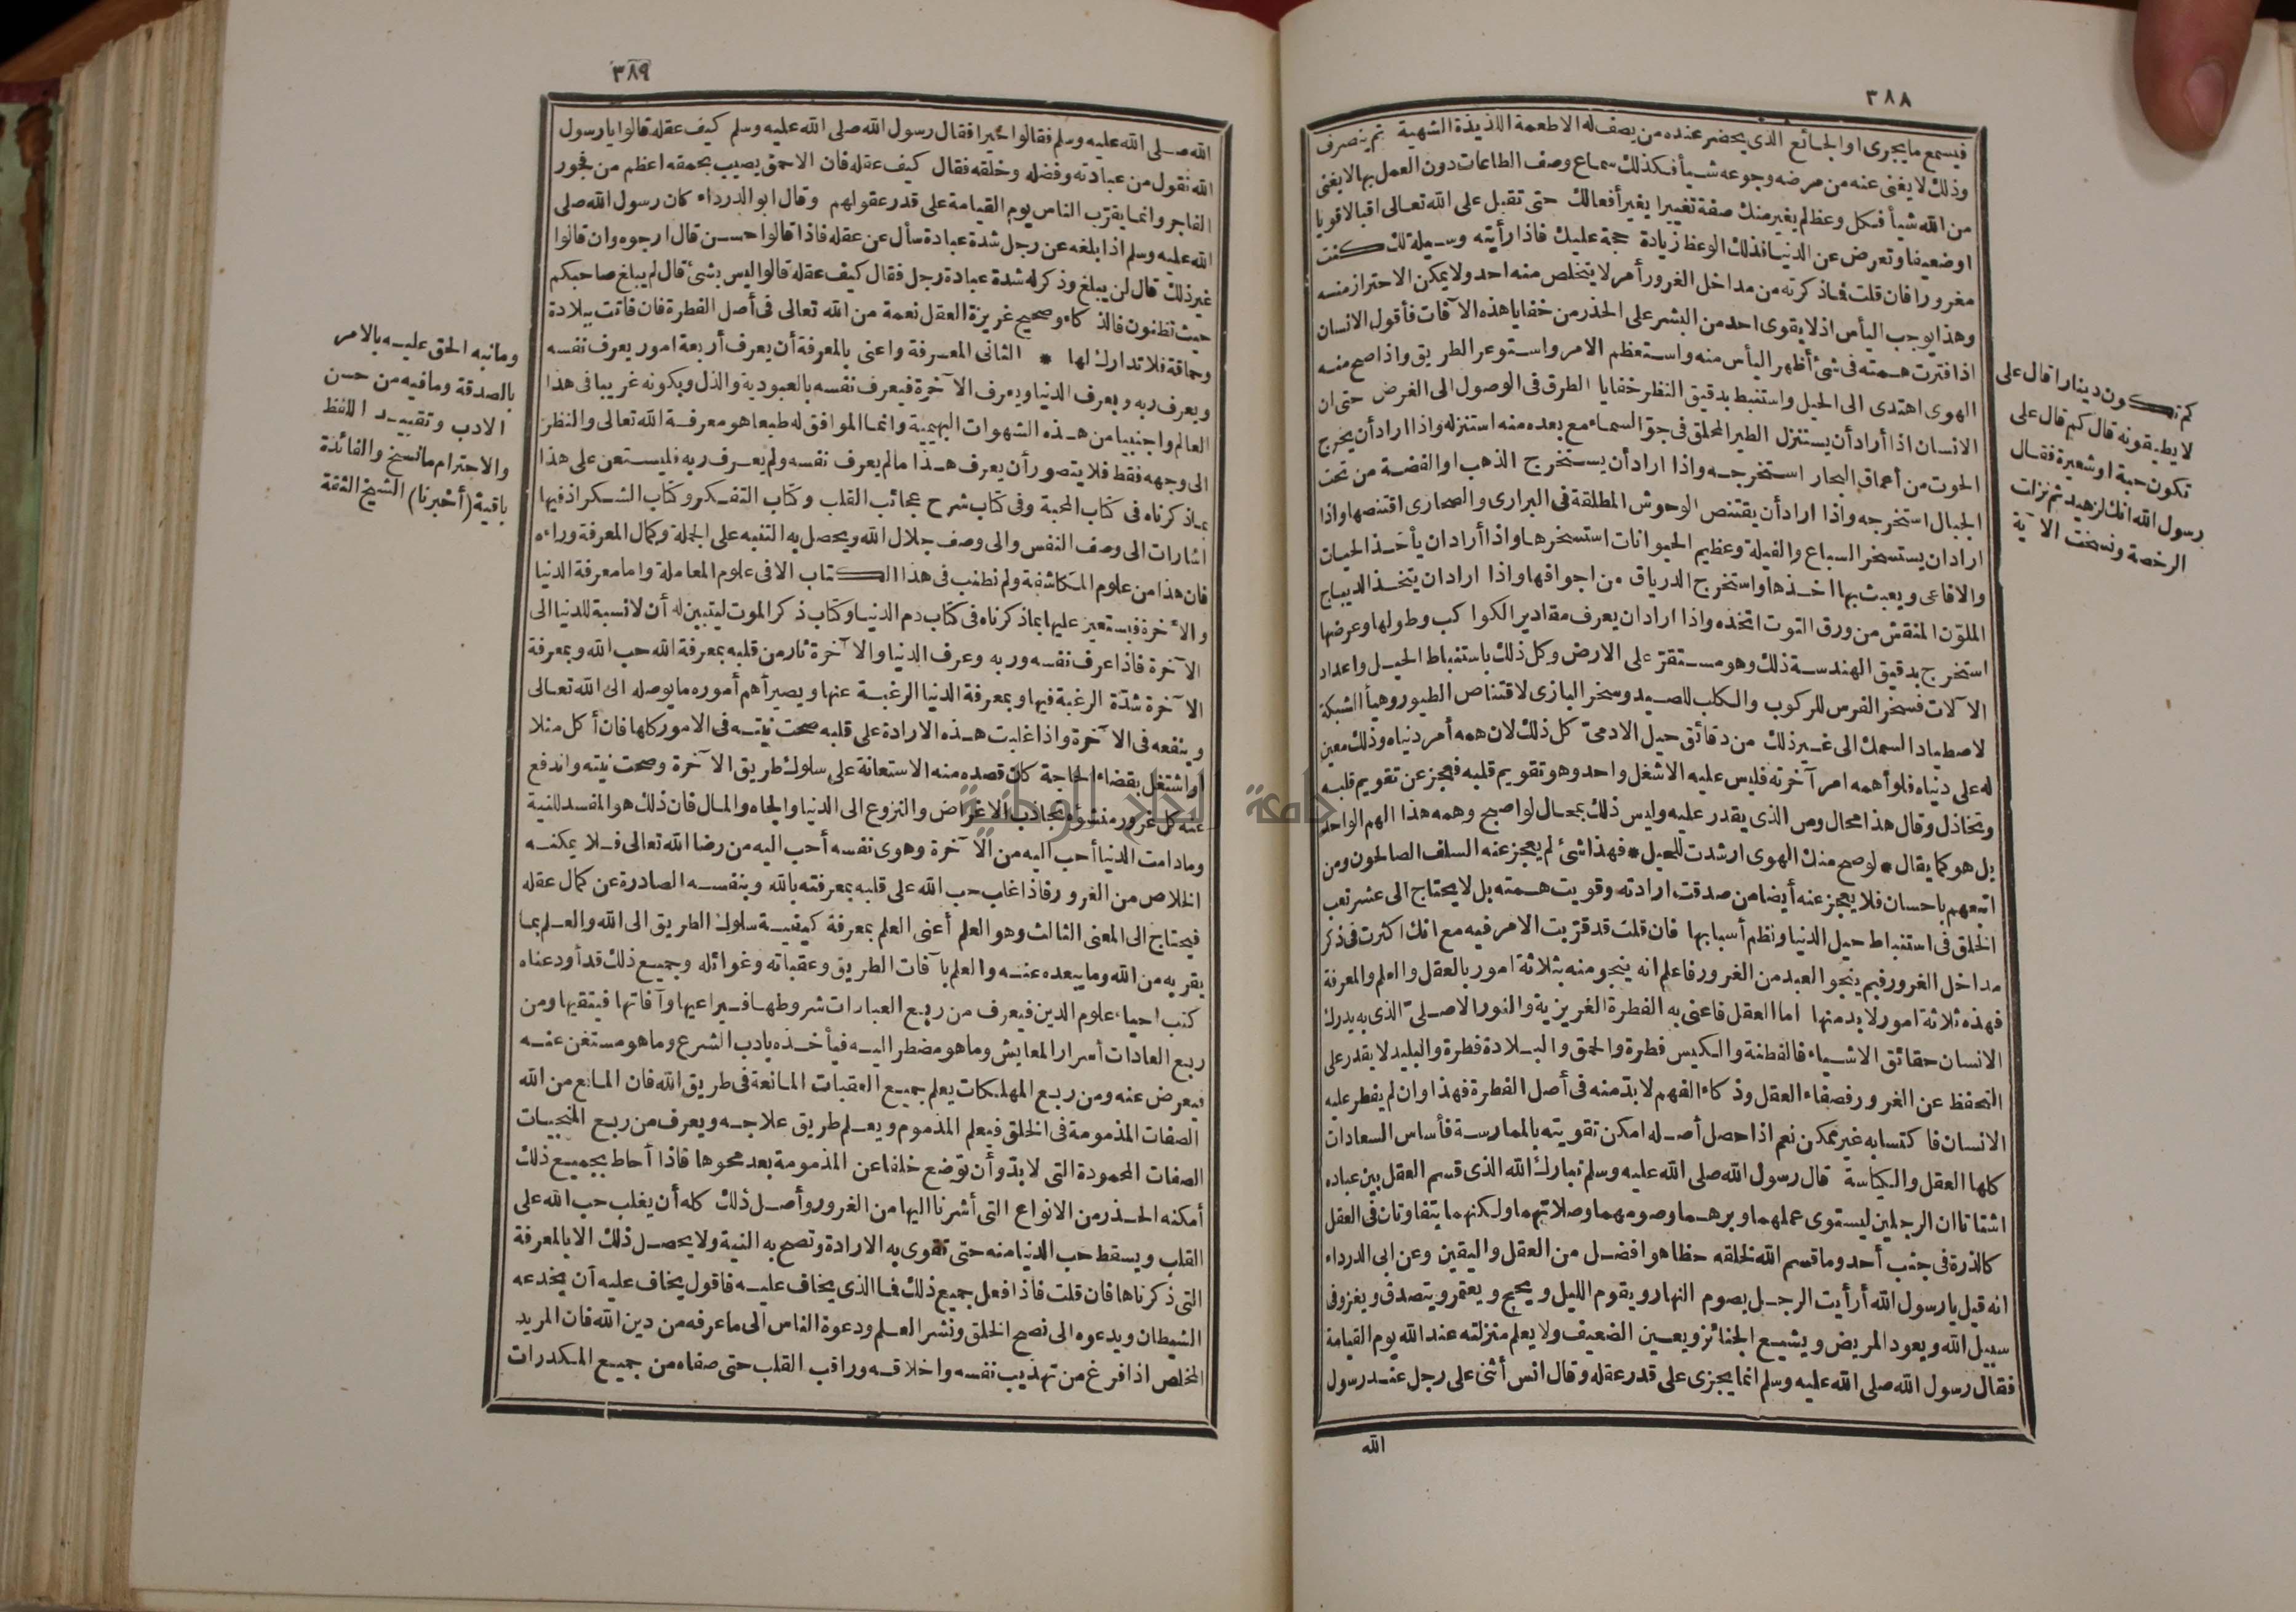 ٣٨٨
فيسمع ما يجرى او الجائع الذى يحضر عنده من يصف له الاطعمة اللذيذة الشهية ثم ينصرف
وذلك لا يغنى عنه من مرضه وجوعه شيأ فكذلك سماع وصف الطاعات دون العمل بها لا يغنى
من الله شيأ فكل وعظ لم يغير منك صفة تغييرا يغير أفعالك حتى تقبل على الله تعالى اقبالا قويا
او ضعيفا وتعرض عن الدنيا فذلك الوعظ زيادة حجة عليك فاذا رأيته وسيلة لك كنت
مغرورا فان قلت فما ذكرته من مداخل الغرور أمر لا يتخلص منه احد ولا يمكن الاحتراز منه
وهذا يوجب اليأس اذ لا يقوى احد من البشر على الحذر من خفايا هذه الآفات فأقول الانسان
اذا فترت همته فى شئ أظهر اليأس منه واستعظم الامر واستوعر الطريق واذا صح منه
الهوى اهتدى الى الحيل واستنبط بدقيق النظر خفايا الطرق فى الوصول الى الغرض حتى ان
الانسان اذا أراد أن يستنزل الطير المحلق فى جو السماء مع بعده منه استنزله واذا اراد أن يخرج
الحوت من أعماق البحار استخرجه واذا اراد أن يستخرج الذهب او الفضة من تحت
الجبال استخرجه واذا اراد أن يقتنص الوحوش المطلقة فى البرارى والصحارى اقتنصها واذا
اراد ان يستسخر السباع والفيلة وعظيم الحيوانات استسخرها واذا أراد ان يأخذ الحيات
والافاعى ويعبث بها اخذها واستخرج الدرياق من اجوافها واذا اراد ان يتخذ الديباج
الملوّن المنقش من ورق التوت اتخذه واذا اراد ان يعرف مقادير الكواكب وطولها وعرضها
استخرج بدقيق الهندسة ذلك وهو مستقرّ على الارض وكل ذلك باستنباط الحيل واعداد
الآلات فسخر الفرس للركوب والكلب للصيد وسخر البازى لاقتناص الطيور وهيأ الشبكة
لاصطياد السمك الى غير ذلك من دقائق حيل الادمىّ كل ذلك لان همه أمر دنياه وذلك معين
له على دنياه فلو أهمه امر آخرته فليس عليه الا شغل واحد وهو تقويم قلبه فعجز عن تقويم قلبه
وتخاذل وقال هذا محال ومن الذى يقدر عليه وليس ذلك بمحال لو اصبح وهمه هذا الهم الواحد
بل هو كما يقال * لوصح منك الهوى ارشدت للحيل * فهذا شئ لم يعجز عنه السلف الصالحون ومن
اتبعهم باحسان فلا يعجز عنه أيضا من صدقت ارادته وقويت همته بل لا يحتاج الى عشر تعب
الخلق فى استنباط حيل الدنيا ونظم أسبابها فان قلت قد قرّبت الامر فيه مع انك اكثرت فى ذكر
مداخل الغرور فبم ينجو العبد من الغرور فاعلم انه ينجو منه بثلاثة امور بالعقل والعلم والمعرفة
فهذه ثلاثة امور لابد منها اما العقل فاعنى به الفطرة الغريزية والنور الاصلىّ الذى به يدرك
الانسان حقائق الاشياء فالفطنة والكيس فطرة والحمق والبلادة فطرة والبليد لا يقدر على
التحفظ عن الغرور فصفاء العقل وذكاء الفهم لابدّ منه فى أصل الفطرة فهذا وان لم يفطر عليه
الانسان فاكتسابه غير ممكن نعم اذا حصل أصله امكن تقويته بالممارسة فأساس السعادات
كلها العقل والكياسة قال رسول الله صلى الله عليه وسلم تبارك الله الذى قسم العقل بين عباده
اشتاتا ان الرجلين ليستوى عملهما وبرهما وصومهما وصلاتهما ولكنهما يتفاوتان فى العقل
كالذرة فى جنب أحد وما قسم الله لخلقه حظا هو افضل من العقل واليقين وعن ابى الدرداء
انه قيل يا رسول الله أرأيت الرجل يصوم النهار ويقوم الليل ويحج ويعتمر ويتصدق ويغزو فى
سبيل الله ويعود المريض ويشيع الجنائز ويعين الضعيف ولا يعلم منزلته عند الله يوم القيامة
فقال رسول الله صلى الله عليه وسلم انما يجزى على قدر عقله وقال انس أثنى على رجل عند رسول
الله
كم تكون دينارا قال على
لا يطيقونه قال كم قال على
تكون حبة او شعيرة فقال
رسول الله انك لزهيد ثم نزلت
الرخصة ونسخت الآية
٣٨٩
الله صلى الله عليه وسلم فقالوا خيرا فقال رسول الله صلى الله عليه وسلم كيف عقله قالوا يا رسول
الله نقول من عبادته وفضله وخلقه فقال كيف عقله فان الاحمق يصيب بحمقه اعظم من فجور
الفاجر وانما يقرّب الناس يوم القيامة على قدر عقولهم وقال ابو الدرداء كان رسول الله صلى
الله عليه وسلم اذا بلغه عن رجل شدة عبادة سأل عن عقله فاذا قالوا حسن قال ارجوه وان قالوا
غير ذلك قال لن يبلغ وذكر له شدة عبادة رجل فقال كيف عقله قالوا ليس بشئ قال لم يبلغ صاحبكم
حيث تظنون فالذكاء وصحيح غريزة العقل نعمة من الله تعالى فى أصل الفطرة فان فاتت ببلادة
وحماقة فلا تدارك لها * الثانى المعرفة واعنى بالمعرفة أن يعرف أربعة امور يعرف نفسه
ويعرف ربه ويعرف الدنيا ويعرف الآخرة فيعرف نفسه بالعبودية والذل وبكونه غريبا فى هذا
العالم واجنبيا من هذه الشهوات البهيمية وانما الموافق له طبعا هو معرفة الله تعالى والنظر
الى وجهه فقط فلا يتصور أن يعرف هذا مالم يعرف نفسه ولم يعرف ربه فليستعن على هذا
بما ذكرناه فى كتاب المحبة وفى كتاب شرح عجائب القلب وكتاب التفكر وكتاب الشكر اذ فيها
اشارات الى وصف النفس والى وصف جلال الله ويحصل به التنبه على الجملة وكمال المعرفة وراءه
فان هذا من علوم المكاشفة ولم نطنب فى هذا الكتاب الا فى علوم المعاملة واما معرفة الدنيا
والآخرة فيستعين عليها بما ذكرناه فى كتاب ذم الدنيا وكتاب ذكر الموت ليتبين له أن لا نسبة للدنيا الى
الآخرة فاذا عرف نفسه وربه وعرف الدنيا والآخرة ثار من قلبه بمعرفة الله حب الله وبمعرفة
الآخرة شدّة الرغبة فيها وبمعرفة الدنيا الرغبة عنها ويصير أهم أموره ما يوصله الى الله تعالى
وينفعه فى الآخرة واذا غلبت هذه الارادة على قلبه صحت نيته فى الامور كلها فان أكل مثلا
او اشتغل بقضاء الحاجة كان قصده منه الاستعانة على سلوك طريق الآخرة وصحت نيته واندفع
عنه كل غرور منشؤه تجاذب الاغراض والنزوع الى الدنيا والجاه والمال فان ذلك هو المفسد للنية
وما دامت الدنيا أحب اليه من الآخرة وهوى نفسه أحب اليه من رضا الله تعالى فلا يمكنه
الخلاص من الغرور فاذا غلب حب الله على قلبه بمعرفته بالله وبنفسه الصادرة عن كمال عقله
فيحتاج الى المعنى الثالث وهو العلم أعنى العلم بمعرفة كيفية سلوك الطريق الى الله والعلم بما
يقربه من الله وما يبعده عنه والعلم بآفات الطريق وعقباته وغوائله وجميع ذلك قد أودعناه
كتب احياء علوم الدين فيعرف من ربع العبادات شروطها فيراعيها وآفاتها فيتقيها ومن
ربع العادات أسرار المعايش وما هو مضطر اليه فيأخذه بادب الشرع وما هو مستغن عنه
فيعرض عنه ومن ربع المهلكات يعلم جميع العقبات المانعة فى طريق الله فان المانع من الله
الصفات المذمومة فى الخلق فيعلم المذموم ويعلم طريق علاجه ويعرف من ربع المنجيات
الصفات المحمودة التى لابدّ وأن توضع خلفا عن المذمومة بعد محوها فاذا أحاط بجميع ذلك
أمكنه الحذر من الانواع التى أشرنا اليها من الغرور وأصل ذلك كله أن يغلب حب الله على
القلب ويسقط حب الدنيا منه حتى تقوى به الارادة وتصح به النية ولا يحصل ذلك الا بالمعرفة
التى ذكرناها فان قلت فاذا فعل جميع ذلك فما الذى يخاف عليه فاقول يخاف عليه أن يخدعه
الشيطان ويدعوه الى نصح الخلق ونشر العلم ودعوة الناس الى ما عرفه من دين الله فان المريد
المخلص اذا فرغ من تهذيب نفسه واخلاقه وراقب القلب حتى صفاه من جميع المكدرات
وما نبه الحق عليه بالامر
بالصدقة وما فيه من حسن
الادب وتقييد اللفظ
والاحترام ما نسخ والفائدة
باقية (أخبرنا) الشيخ الثقة
جامعة النجاح الوطنية